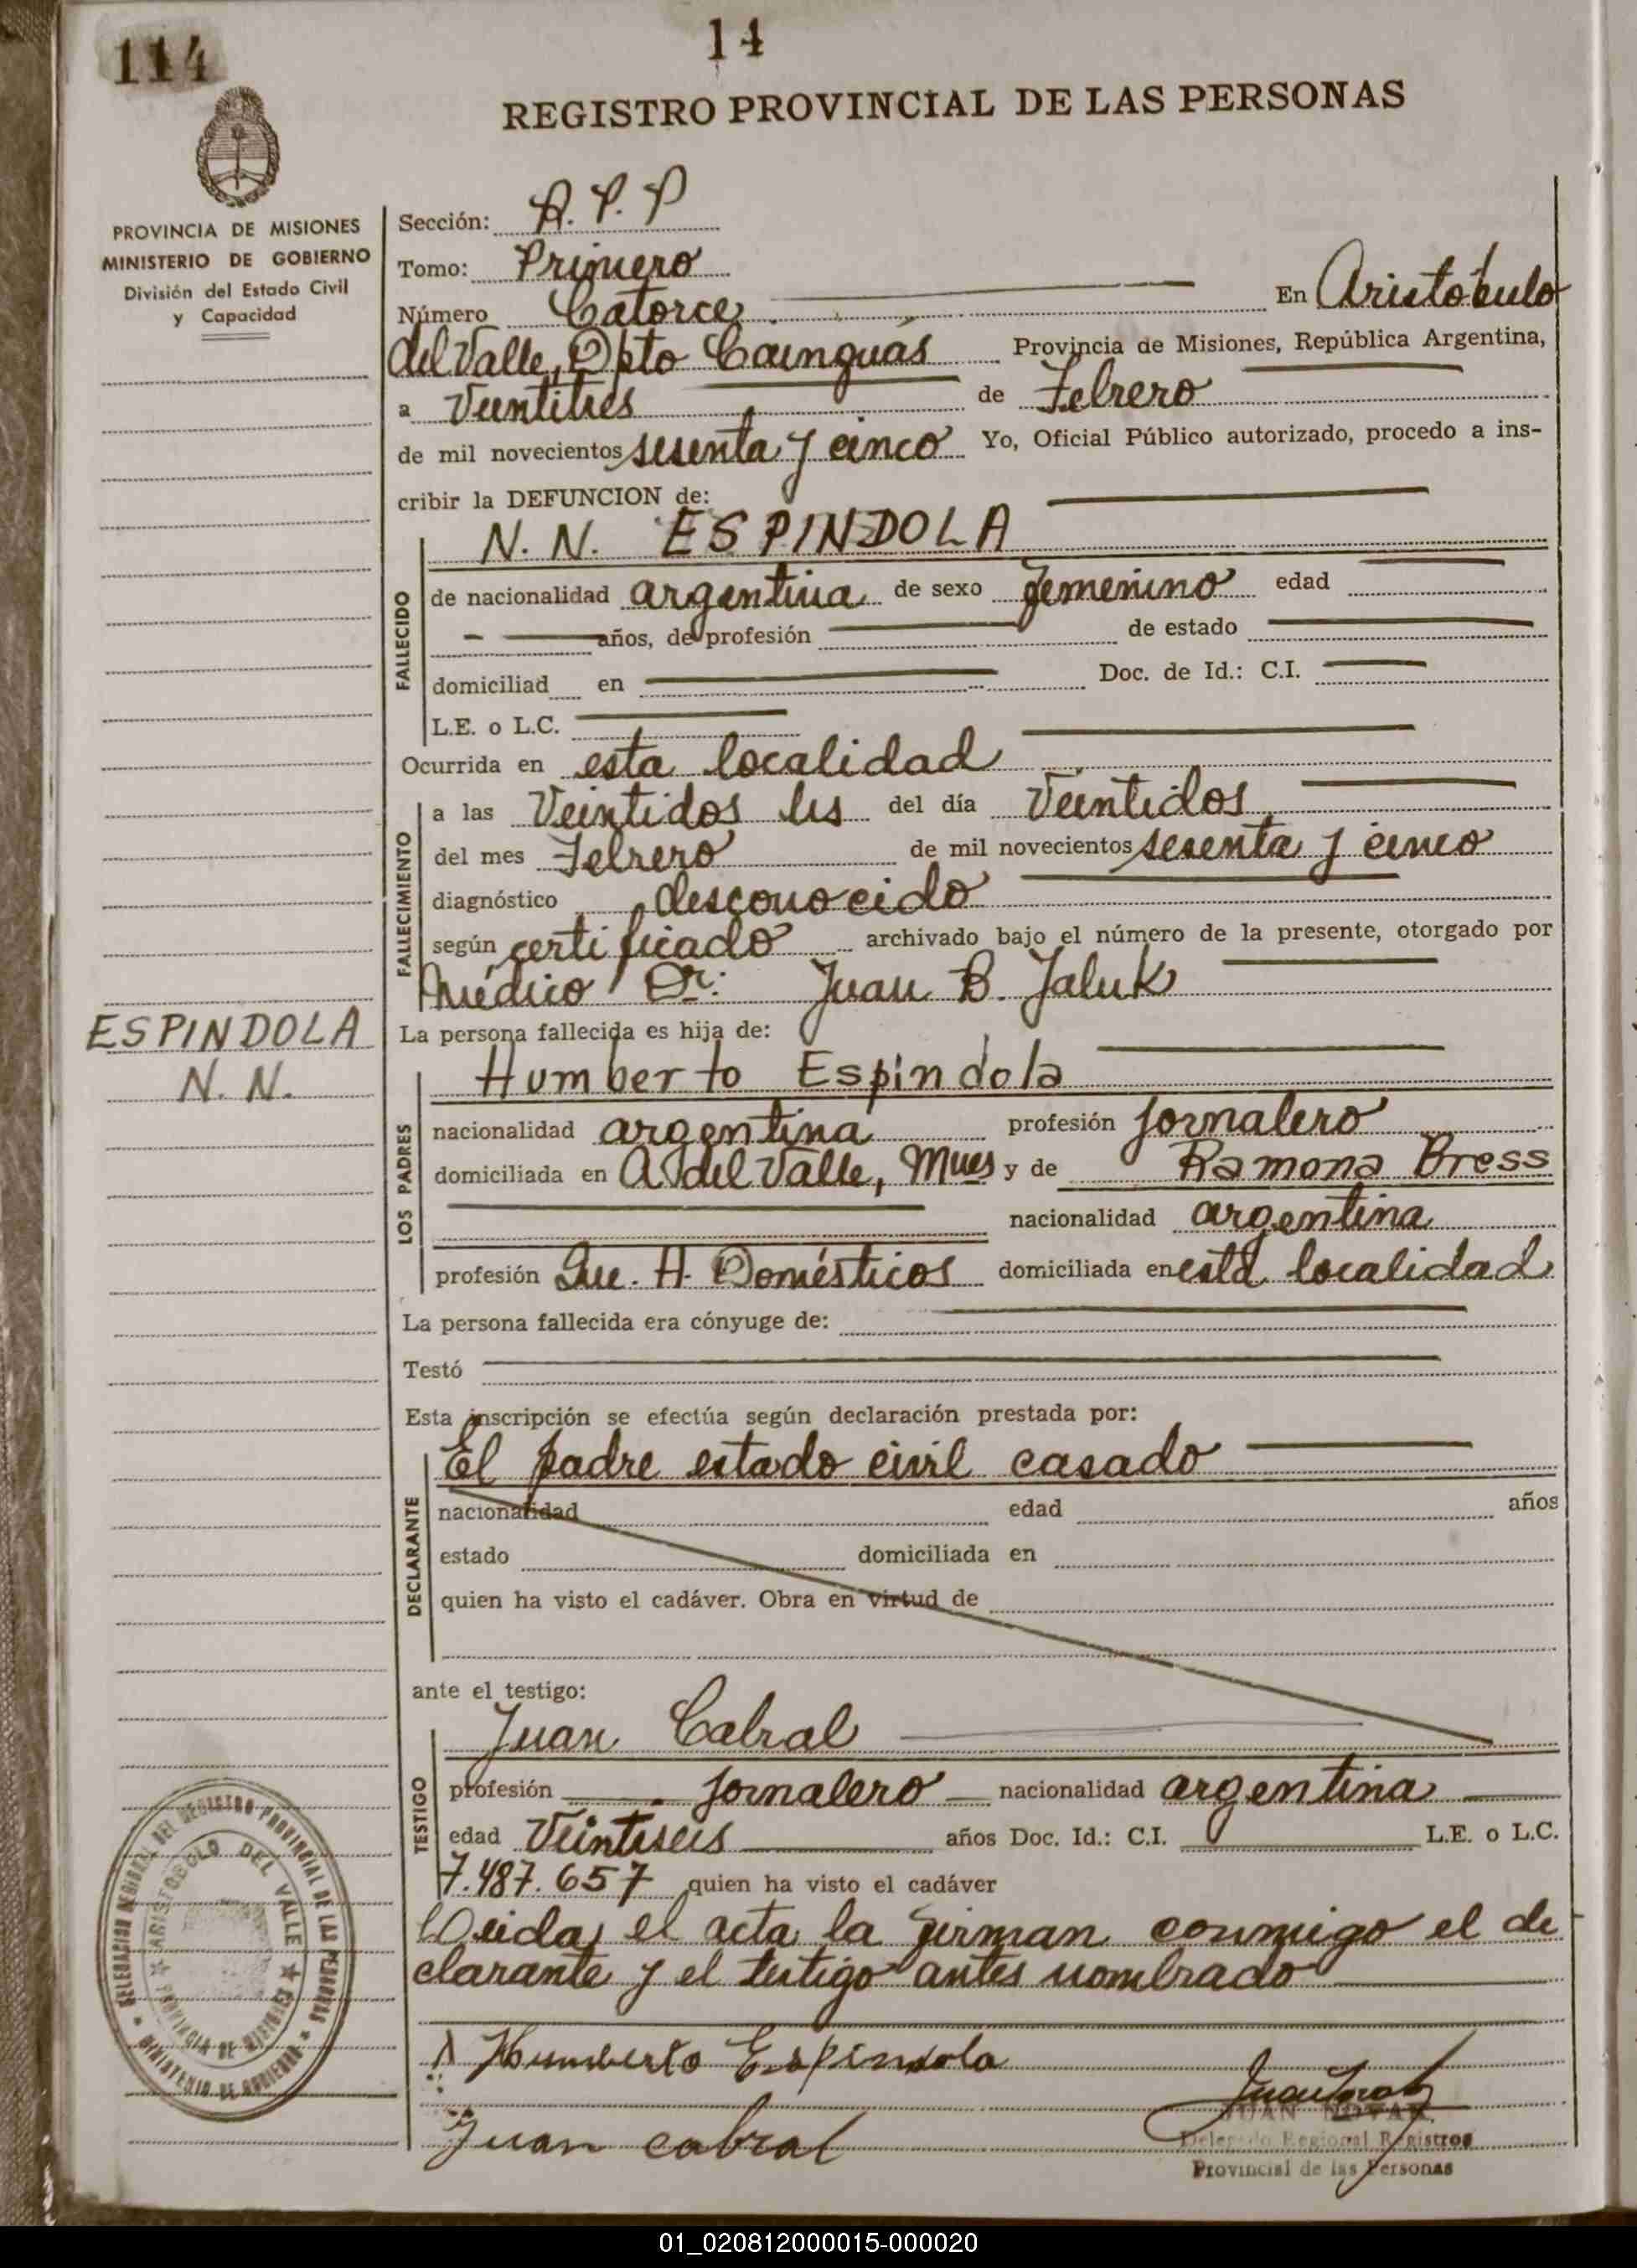 114
14
REGISTRO PROVINCIAL DE LAS PERSONAS
PROVINCIA DE MISIONES
MINISTERIO DE GOBIERNO
División del Estado Civil
y Capacidad
Sección: A. P. P
Tomo: Primero
Número Catorce En Aristóbulo
del Valle, Dpto Cainguás Provincia de Misiones, República Argentina,
a Veintitres de Febrero
de mil novecientos sesenta y cinco Yo, Oficial Público autorizado, procedo a ins-
cribir la DEFUNCION de:
N. N. ESPINDOLA
FALLECIDO
de nacionalidad argentina de sexo femenino edad
años, de profesión de estado
domiciliad en Doc. de Id.: C.I.
L.E. o L.C.
Ocurrida en esta localidad
FALLECIMIENTO
a las Veintidos hs del día Veintidos
del mes Febrero de mil novecientos sesenta y cinco
diagnóstico desconocido
según certificado archivado bajo el número de la presente, otorgado por
Médico Dr: Juan B. Jaluk
ESPINDOLA
N. N.
La persona fallecida es hija de:
LOS PADRES
Humberto Espindola
nacionalidad argentina profesión Jornalero
domiciliada en A. del Valle, Mnes y de Ramona Bress
nacionalidad argentina
profesión Que. H. Domésticos domiciliada en esta localidad
La persona fallecida era cónyuge de:
Testó
Esta inscripción se efectúa según declaración prestada por:
DECLARANTE
El padre estado civil casado
nacionalidad edad años
estado domiciliada en
quien ha visto el cadáver. Obra en virtud de
ante el testigo:
TESTIGO
Juan Cabral
profesión Jornalero nacionalidad argentina
edad Veintiseis años Doc. Id.: C.I. L.E. o L.C.
7.487.657 quien ha visto el cadáver
Leida el acta la firman conmigo el de
clarante y el testigo antes nombrado
Humberto Espindola
Juan cabral
JUAN
Delegado Regional Registros
Provincial de las Personas
DELEGACION REGIONAL DEL REGISTRO PROVINCIAL DE LAS PERSONAS
MINISTERIO DE GOBIERNO
ARISTOBULO DEL VALLE
PROVINCIA DE MISIONES
01_020812000015-000020